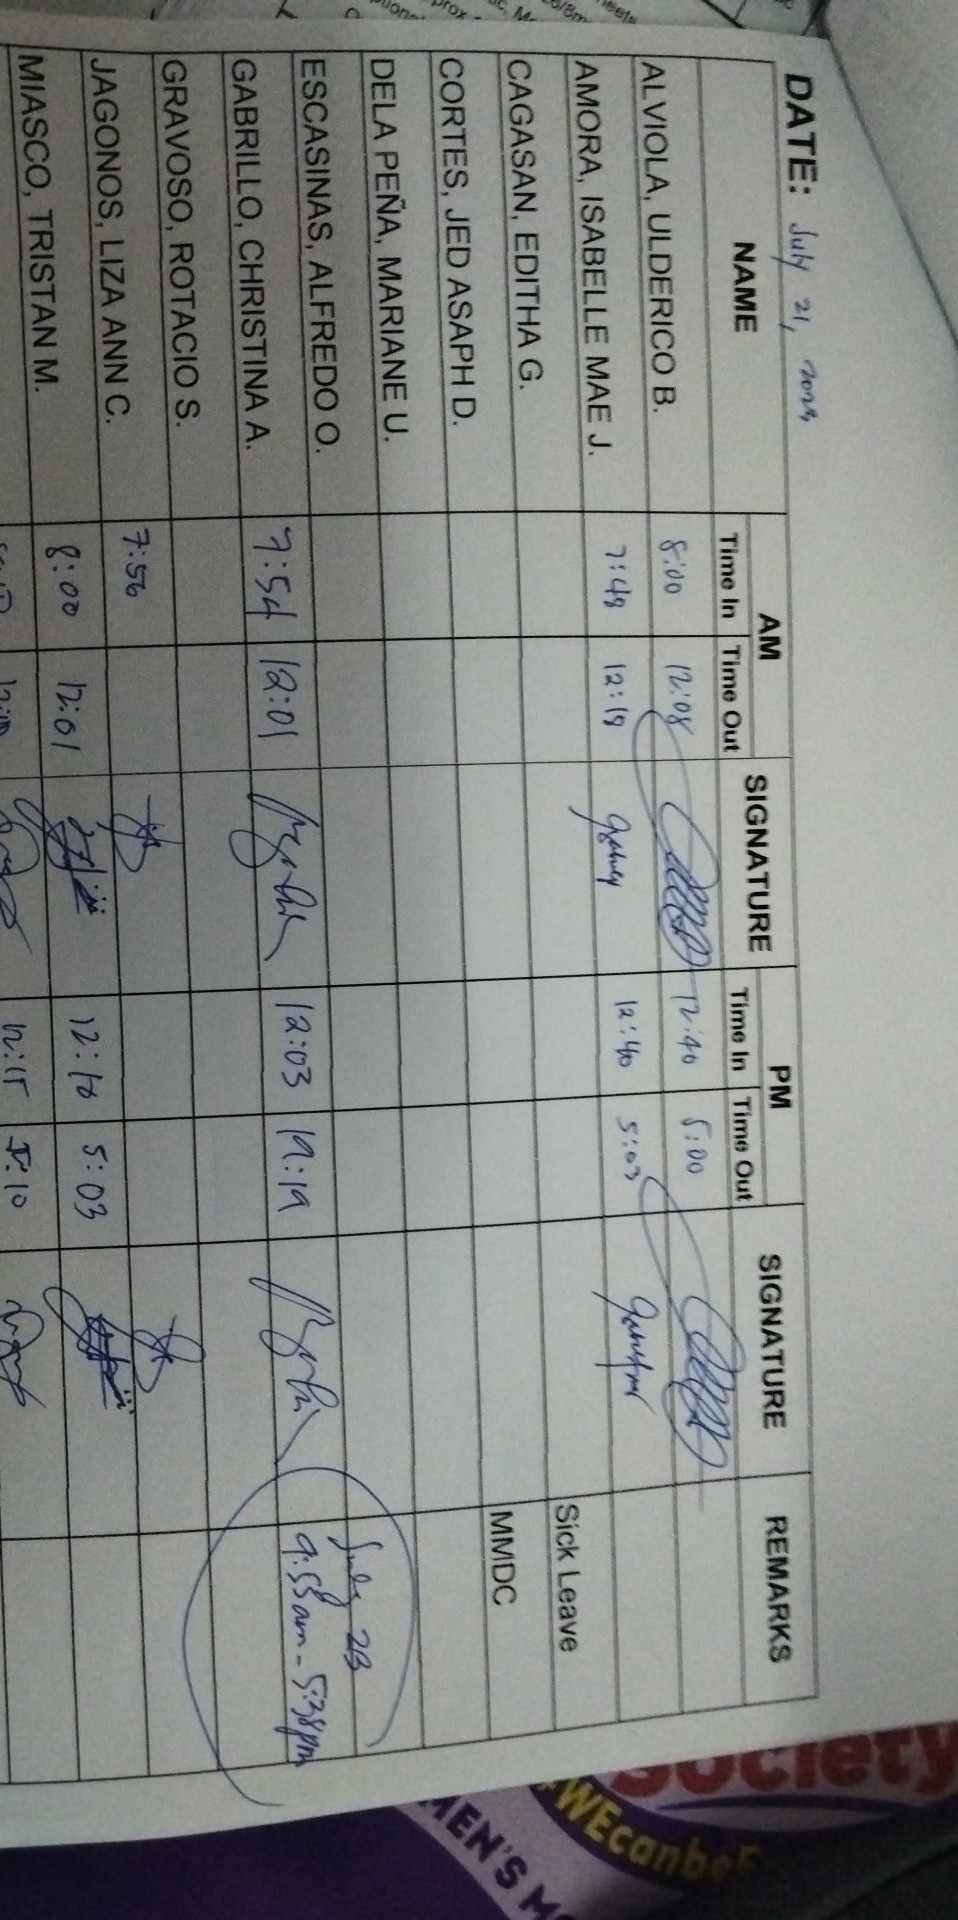 DATE: July 21, 2025
NAME AM SIGNATURE PM SIGNATURE REMARKS
Time In Time Out Time In Time Out
ALVIOLA, ULDERICO B. 8:00 12:08 12:40 5:00
AMORA, ISABELLE MAE J. 7:48 12:18 12:40 5:03
CAGASAN, EDITHA G. Sick Leave
CORTES, JED ASAPH D. MMDC
DELA PEÑA, MARIANE U.
ESCASINAS, ALFREDO O. July 23
GABRILLO, CHRISTINA A. 7:54 12:01 12:03 19:19 9:55am - 5:38pm
GRAVOSO, ROTACIO S.
JAGONOS, LIZA ANN C. 7:56
MIASCO, TRISTAN M. 8:00 12:01 12:10 5:03
12:15 5:10
Society
#WEcanbeE
MEN'S